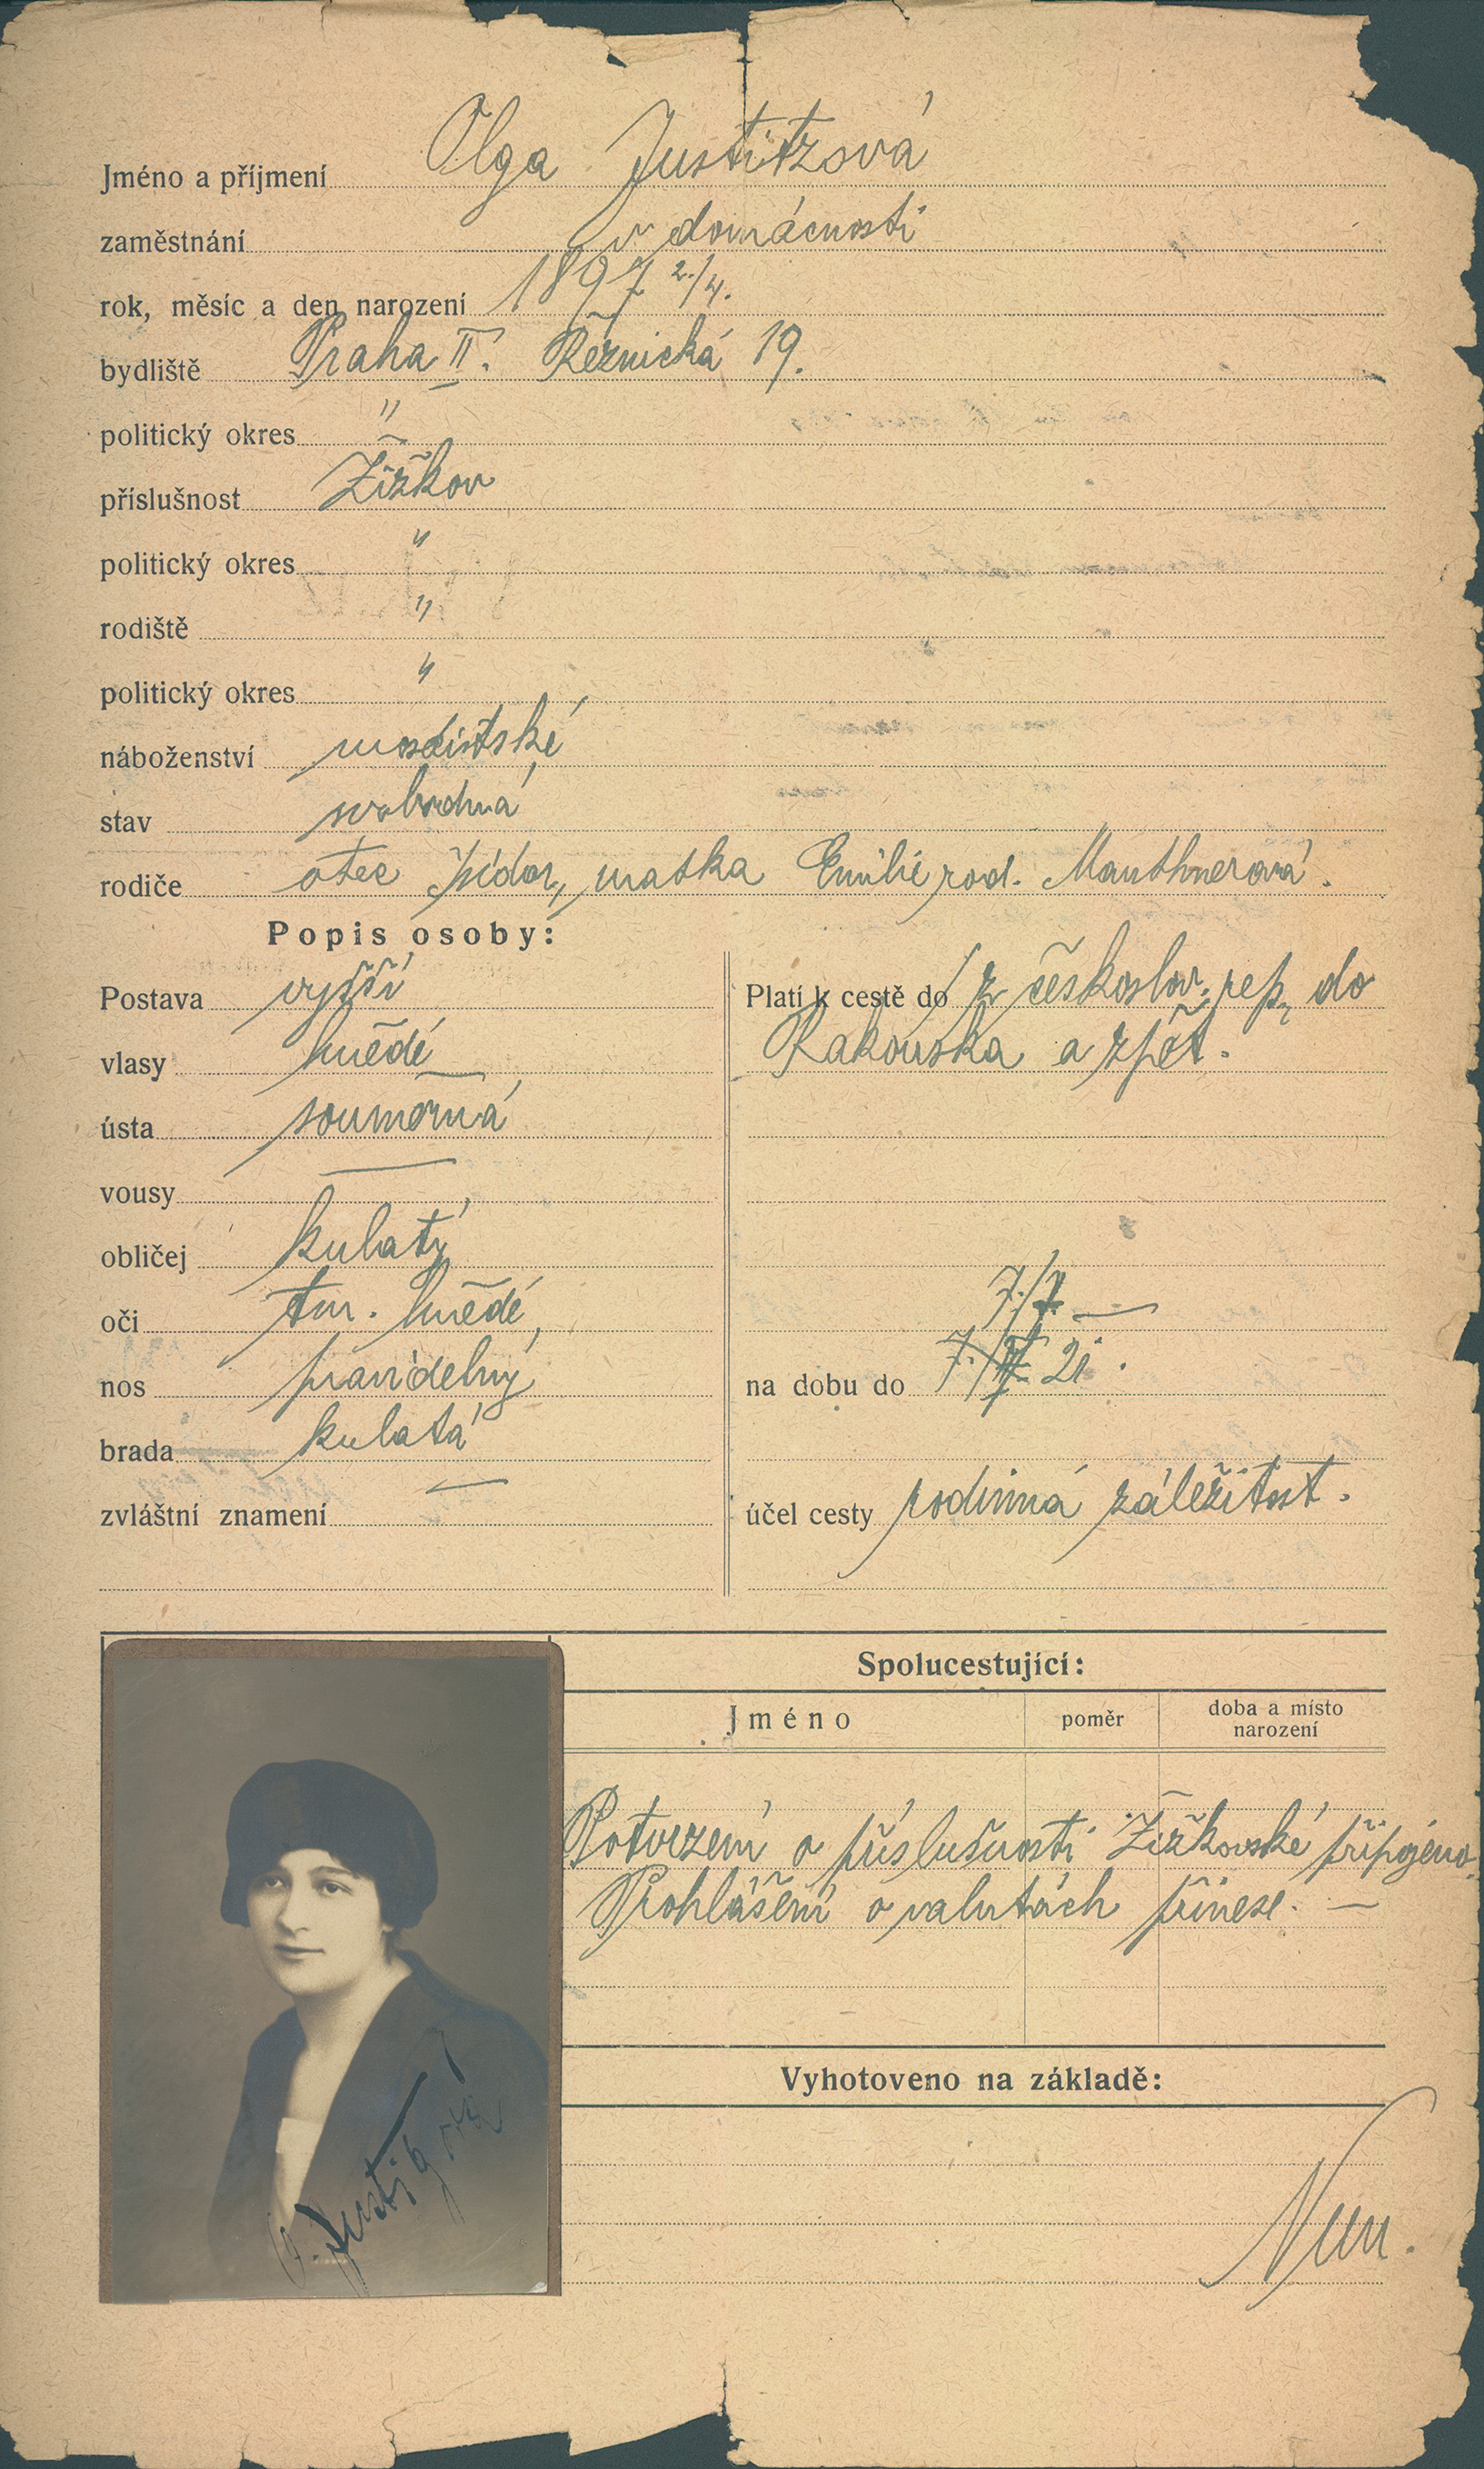 Jméno a příjmení Olga Justitzová
zaměstnání v domácnosti
rok, měsíc a den narození 1897 2./4.
bydliště Praha II. Řeznická 19.
politický okres "
příslušnost Žižkov
politický okres "
rodiště "
politický okres "
náboženství
stav svobodná
rodiče otec Isidor, matka Emilie rod. Mauthnerová.
Popis osoby:
Postava vyšší
vlasy hnědé
ústa souměrná
vousy —
obličej kulatý
oči tm. hnědé
nos pravidelný
brada kulatá
zvláštní znamení —
Platí k cestě do z českoslov. rep. do
Rakouska a zpět.
7./7. —
na dobu do 21.
účel cesty rodinná záležitost.
Spolucestující:
Jméno poměr doba a místo
narození
Potvrzení o příslušnosti Žižkovské připojeno.
Prohlášení o valutách přinese. —
Vyhotoveno na základě: